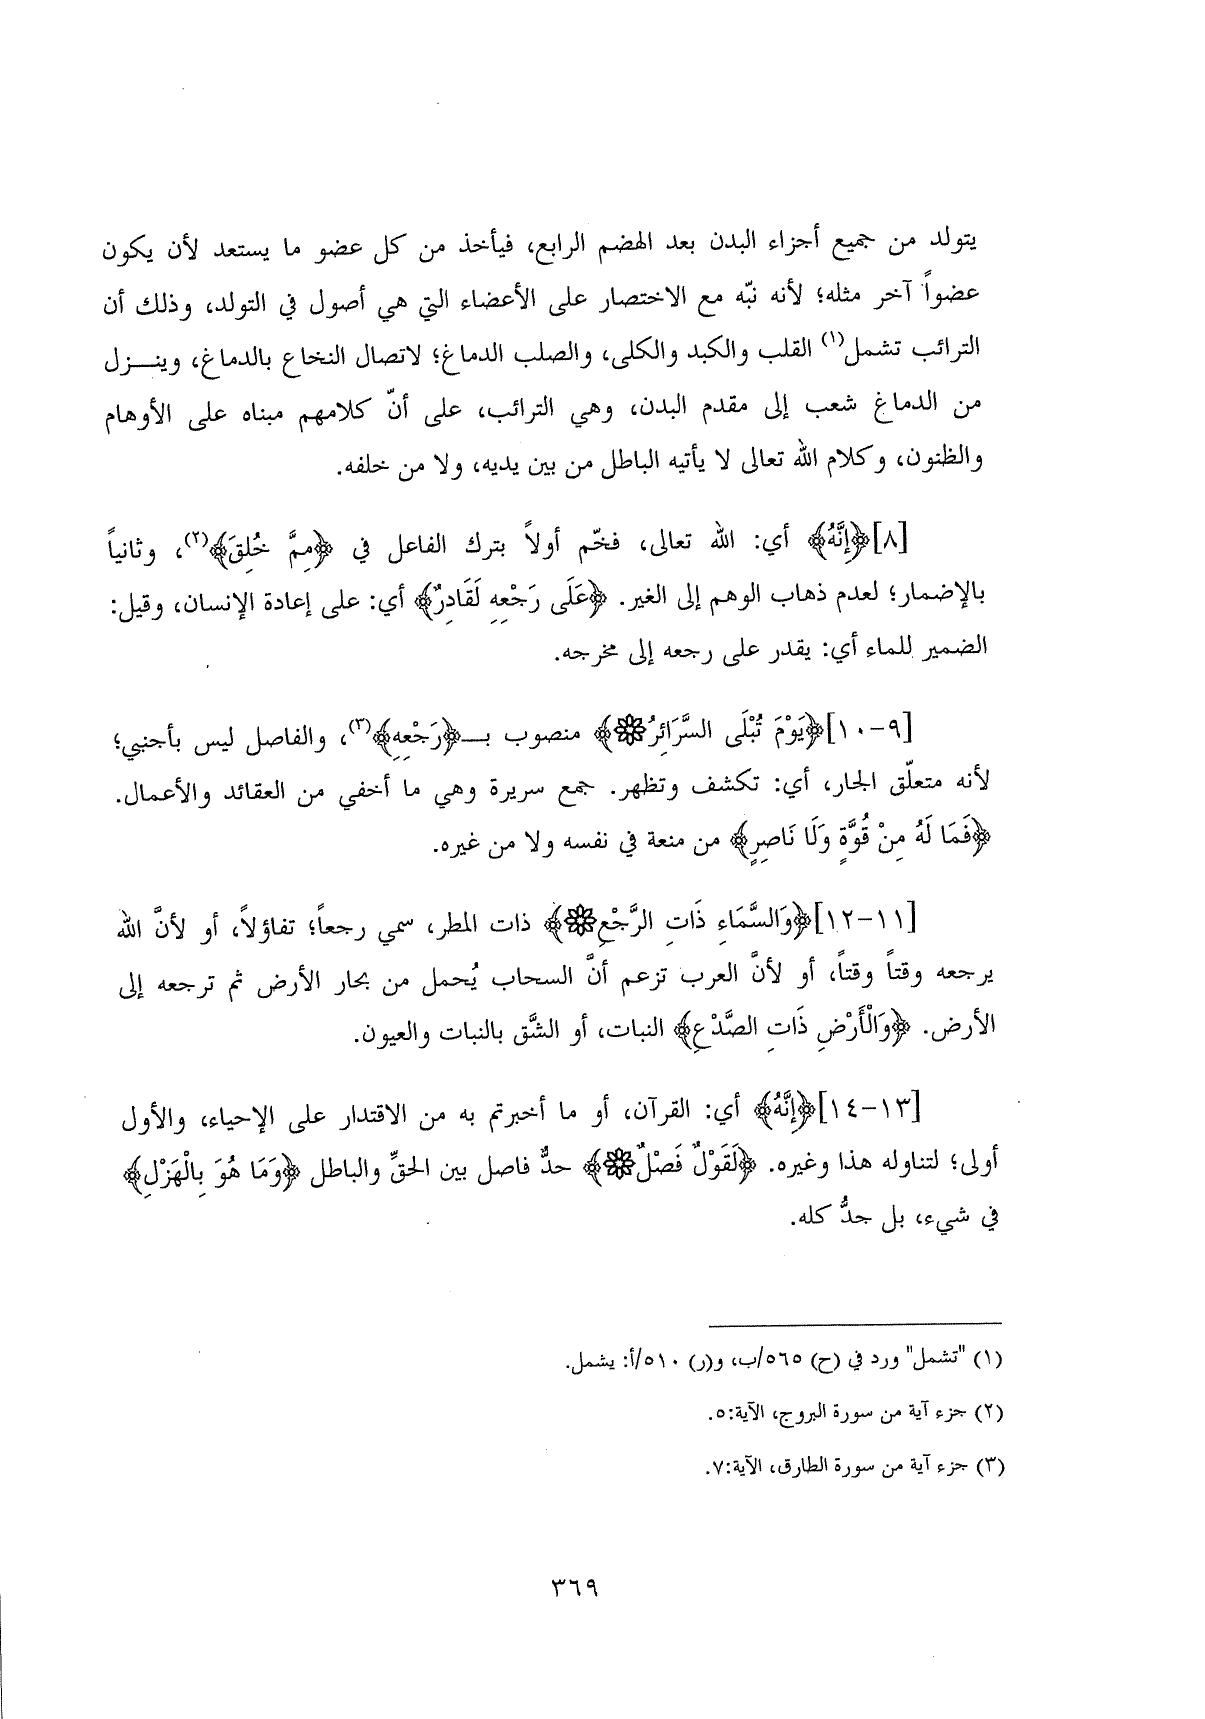 يتولد من جميع أجزاء البدن بعد الهضم الرابع، فيأخذ من كل عضو ما يستعد لأن يكون
عضواً آخر مثله؛ لأنه نبّه مع الاختصار على الأعضاء التي هي أصول في التولد، وذلك أن
الترائب تشمل(١) القلب والكبد والكلى، والصلب الدماغ؛ لاتصال النخاع بالدماغ، وينـــزل
من الدماغ شعب إلى مقدم البدن، وهي الترائب، على أنّ كلامهم مبناه على الأوهام
والظنون، وكلام الله تعالى لا يأتيه الباطل من بين يديه، ولا من خلفه.
[٨]﴿إِنَّهُ﴾ أي: الله تعالى، فخّم أولاً بترك الفاعل في ﴿مِمَّ خُلِقَ﴾(٢)، وثانياً
بالإضمار؛ لعدم ذهاب الوهم إلى الغير. ﴿عَلَى رَجْعِهِ لَقَادِرٌ﴾ أي: على إعادة الإنسان، وقيل:
الضمير للماء أي: يقدر على رجعه إلى مخرجه.
[٩-١٠]﴿يَوْمَ تُبْلَى السَّرَائِرُ۞﴾ منصوب بـــ﴿رَجْعِهِ﴾(٣)، والفاصل ليس بأجنبي؛
لأنه متعلّق الجار، أي: تكشف وتظهر. جمع سريرة وهي ما أخفي من العقائد والأعمال.
﴿فَمَا لَهُ مِنْ قُوَّةٍ وَلَا نَاصِرٍ﴾ من منعة في نفسه ولا من غيره.
[١١-١٢]﴿وَالسَّمَاءِ ذَاتِ الرَّجْعِ۞﴾ ذات المطر، سمي رجعاً؛ تفاؤلاً، أو لأنَّ الله
يرجعه وقتاً وقتاً، أو لأنَّ العرب تزعم أنَّ السحاب يُحمل من بحار الأرض ثم ترجعه إلى
الأرض. ﴿وَالْأَرْضِ ذَاتِ الصَّدْعِ﴾ النبات، أو الشَّق بالنبات والعيون.
[١٣-١٤]﴿إِنَّهُ﴾ أي: القرآن، أو ما أخبرتم به من الاقتدار على الإحياء، والأول
أولى؛ لتناوله هذا وغيره. ﴿لَقَوْلٌ فَصْلٌ۞﴾ حدٌّ فاصل بين الحقِّ والباطل ﴿وَمَا هُوَ بِالْهَزْلِ﴾
في شيء، بل جدٌّ كله.
(١) "تشمل" ورد في (ح) ٥٦٥/ب، و(ر) ٥١٠/أ: يشمل.
(٢) جزء آية من سورة البروج، الآية:٥.
(٣) جزء آية من سورة الطارق، الآية:٧.
٣٦٩